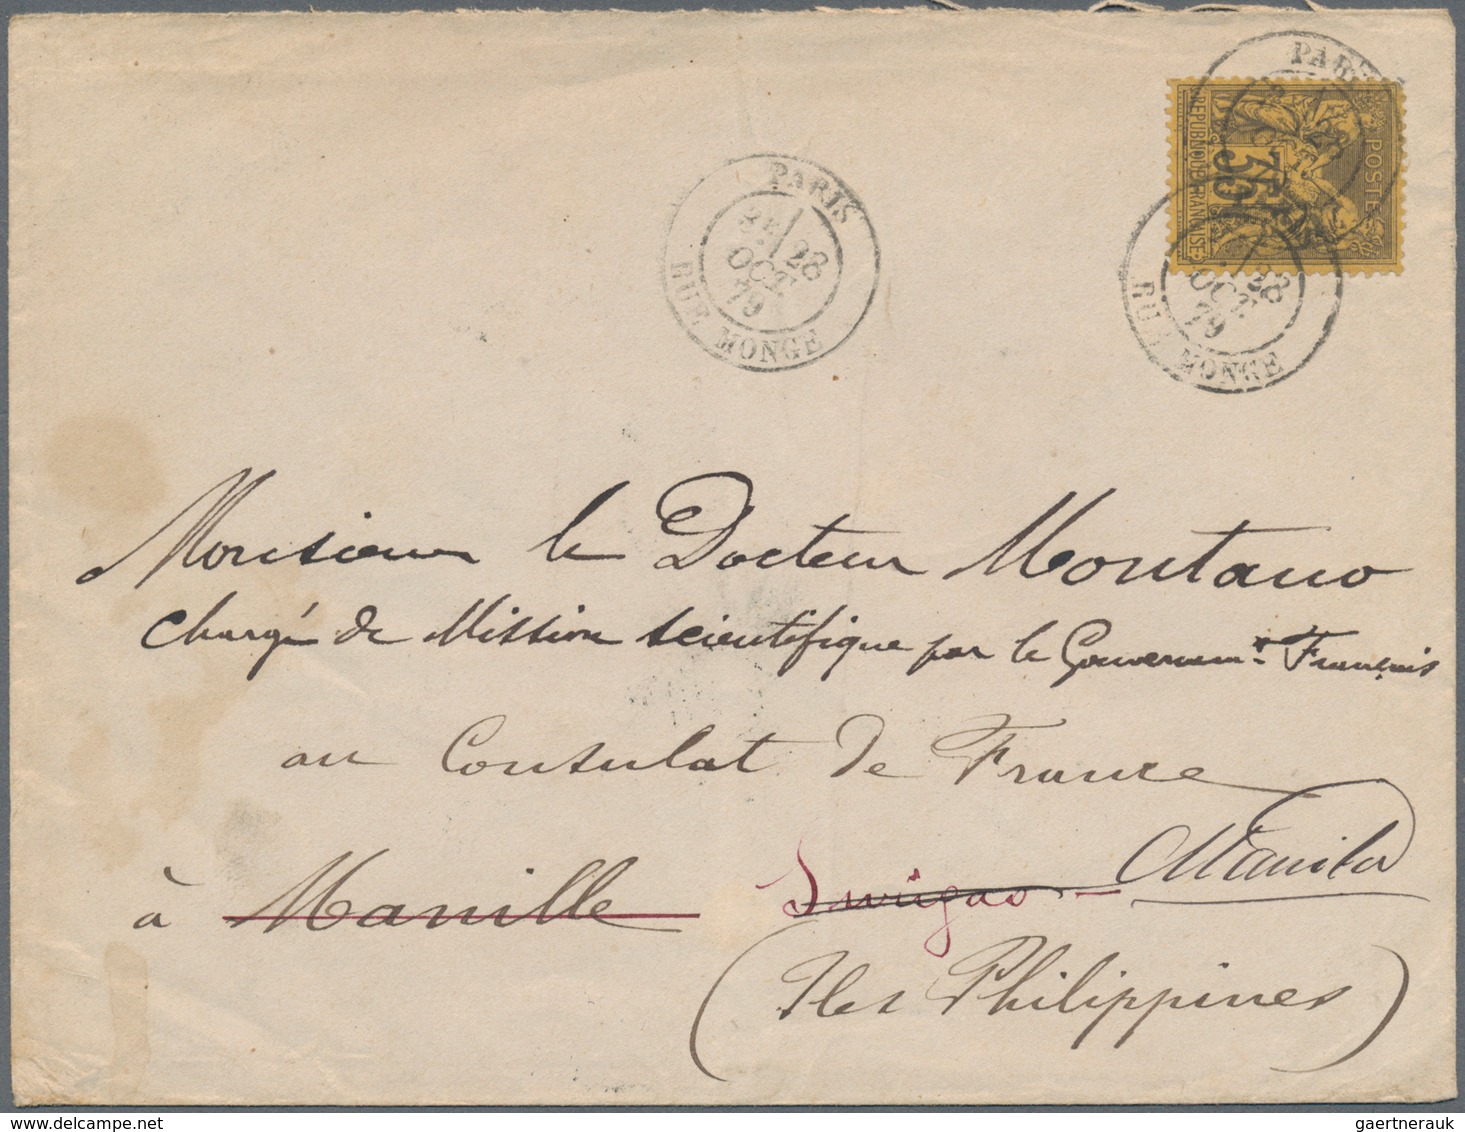 PARIS
3E / 28
OCT.
79
RUE MONGE
PARIS
REPUBLIQUE FRANÇAISE
35
POSTES
28
OCT.
79
RUE MONGE
Monsieur le Docteur Montano
chargé de Mission scientifique par le Gouvernemt Français
au Consulat de France
à Manille Surigao Manila
(Iles Philippines)
gaertnerauk@delcampe.net